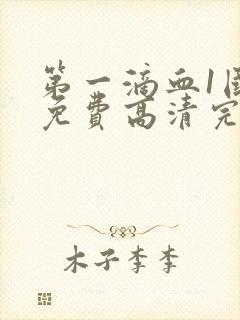 第一滴血1国
免费高清完
木子李李